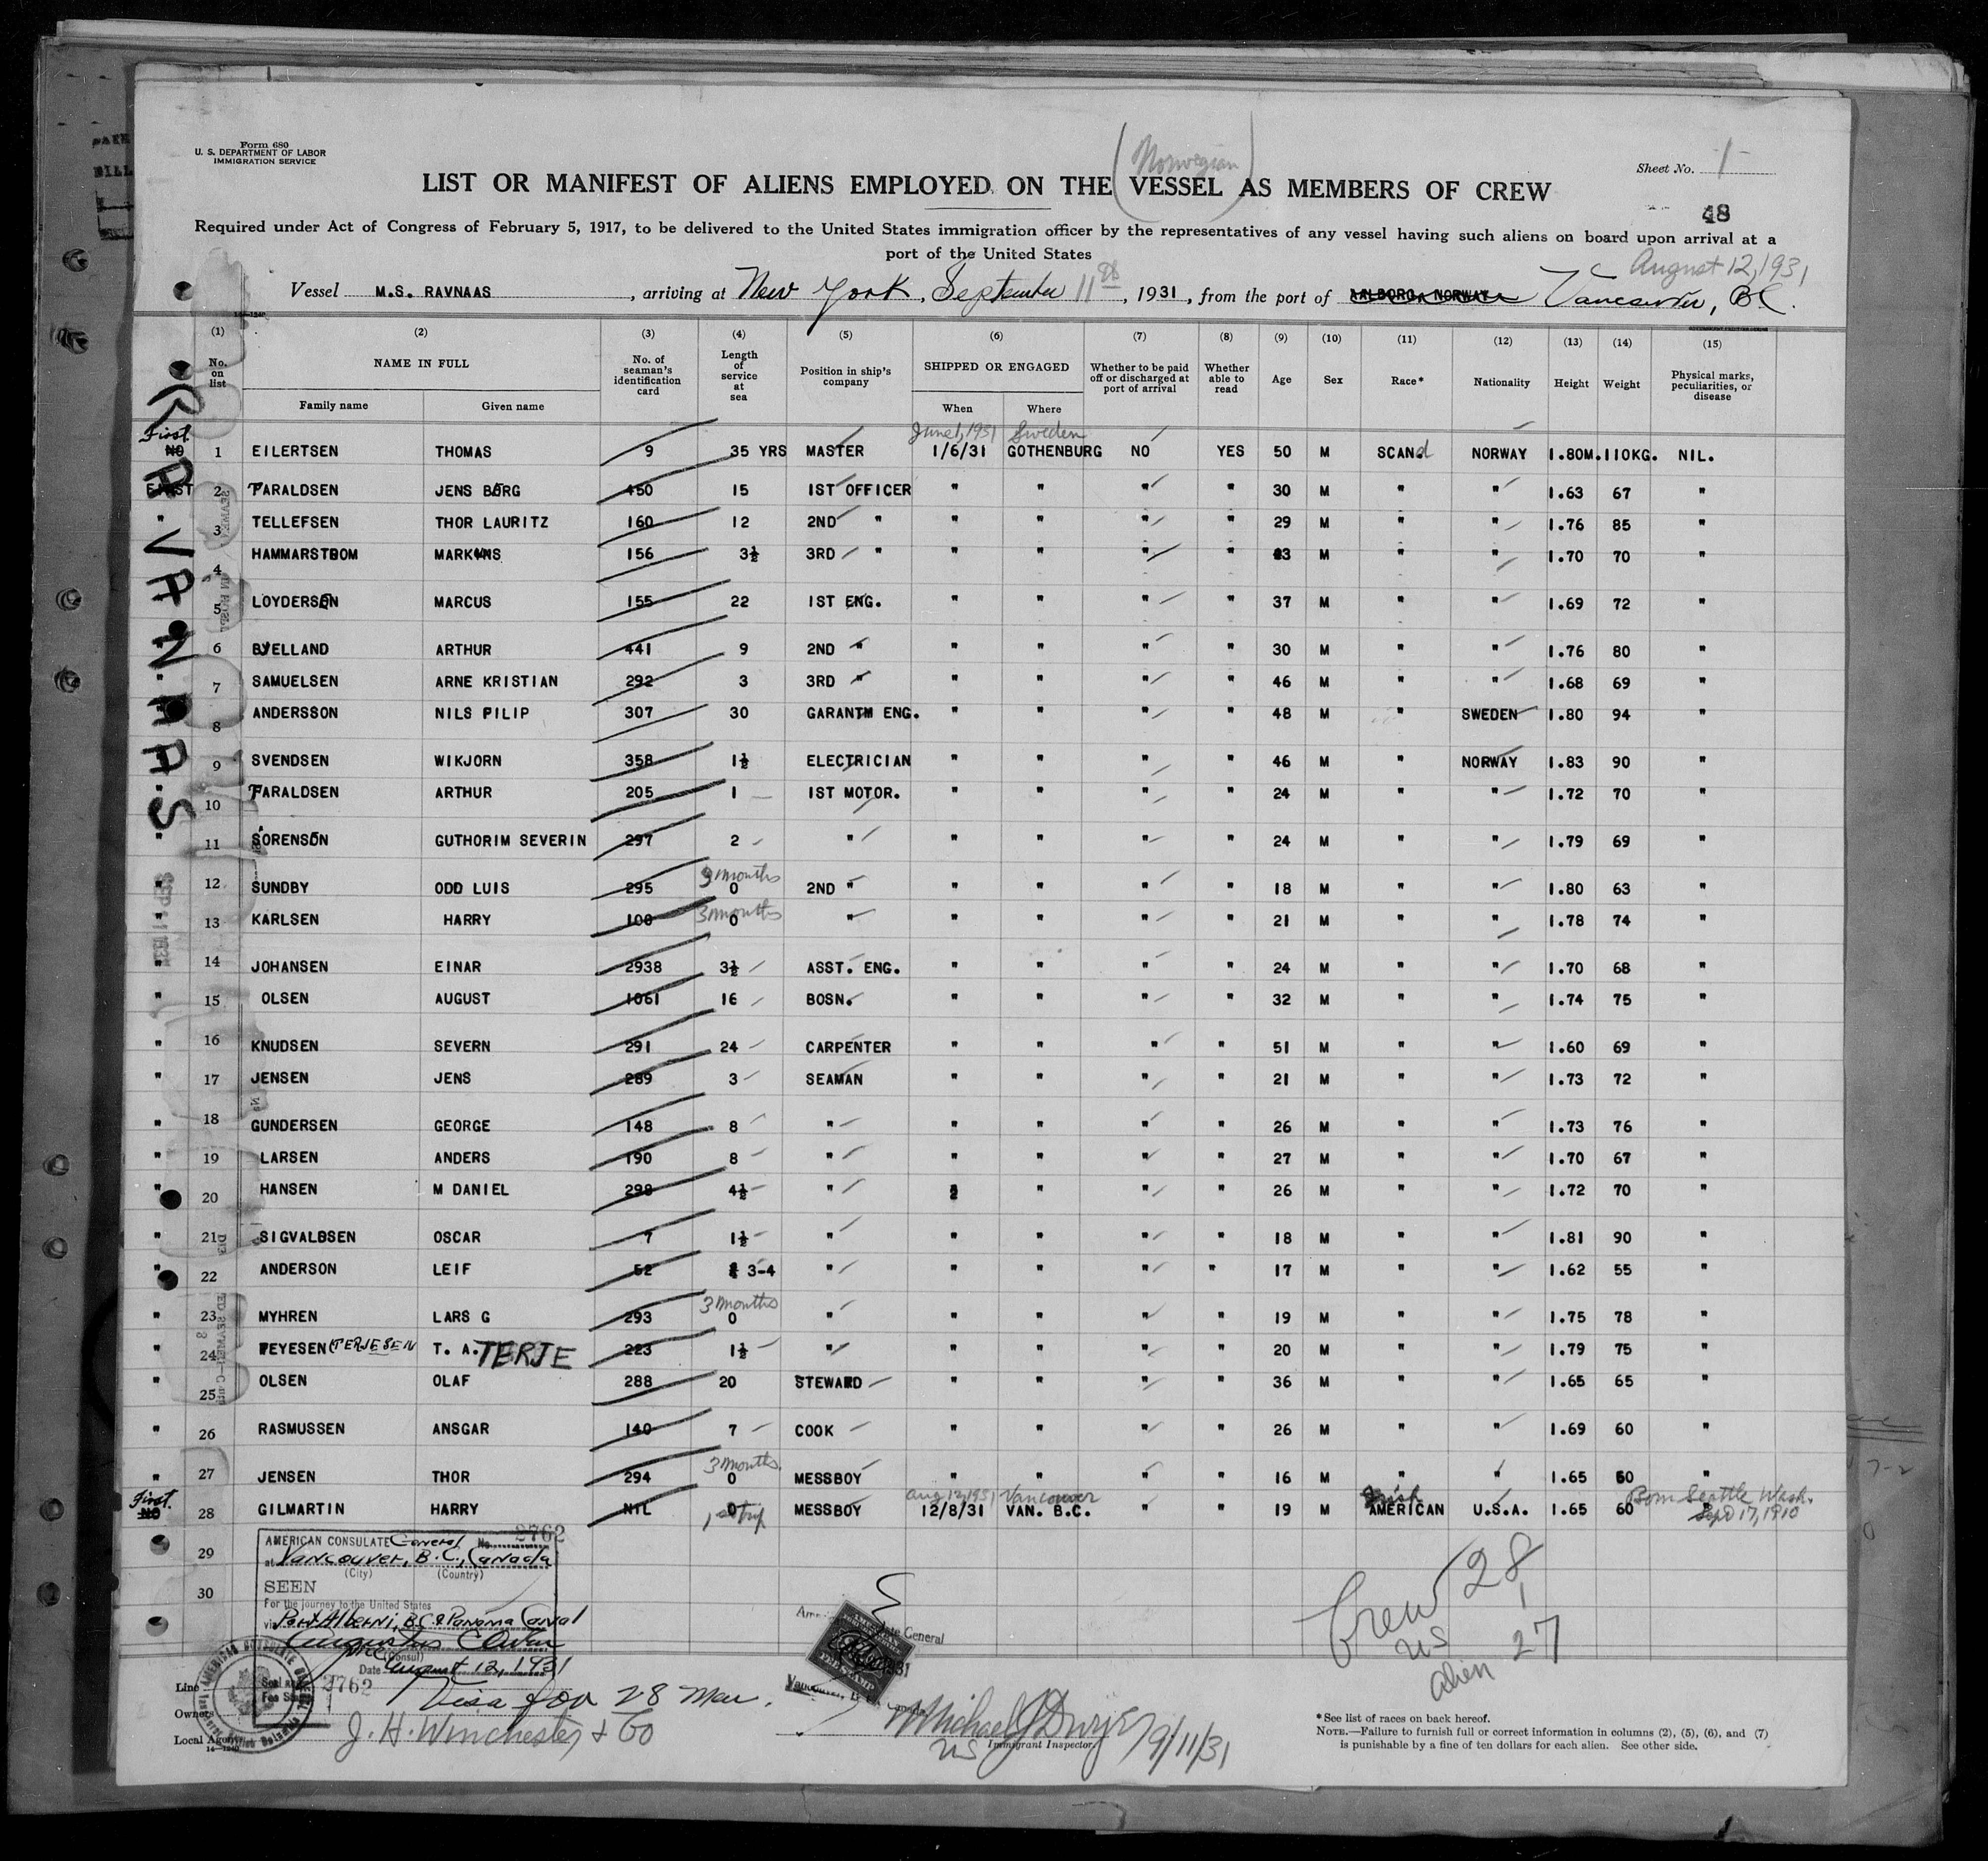 Form 680
U. S. DEPARTMENT OF LABOR
IMMIGRATION SERVICE
(Norwegian)
Sheet No. 1
LIST OR MANIFEST OF ALIENS EMPLOYED ON THE VESSEL AS MEMBERS OF CREW
48
Required under Act of Congress of February 5, 1917, to be delivered to the United States immigration officer by the representatives of any vessel having such aliens on board upon arrival at a
port of the United States
August 12, 1931
Vessel M.S. RAVNAAS, arriving at New York, September 11th, 1931, from the port of AALBORG, NORWAY Vancouver, BC.
(1) (2) (3) (4) (5) (6) (7) (8) (9) (10) (11) (12) (13) (14) (15)
No. on list NAME IN FULL No. of seaman's identification card Length of service at sea Position in ship's company SHIPPED OR ENGAGED Whether to be paid off or discharged at port of arrival Whether able to read Age Sex Race* Nationality Height Weight Physical marks, peculiarities, or disease
Family name Given name When Where
First June 1, 1931 Sweden
NO 1 EILERTSEN THOMAS 9 35 YRS MASTER 1/6/31 GOTHENBURG NO YES 50 M SCAND NORWAY 1.80M. 110KG. NIL.
FIRST 2 TARALDSEN JENS BORG 450 15 1ST OFFICER " " " " 30 M " " 1.63 67 "
" 3 TELLEFSEN THOR LAURITZ 160 12 2ND " " " " " 29 M " " 1.76 85 "
4 HAMMARSTROM MARKUS 156 3½ 3RD " " " " " 23 M " " 1.70 70 "
5 LOYDERSEN MARCUS 155 22 1ST ENG. " " " " 37 M " " 1.69 72 "
6 BJELLAND ARTHUR 441 9 2ND " " " " " 30 M " " 1.76 80 "
7 SAMUELSEN ARNE KRISTIAN 292 3 3RD " " " " " 46 M " " 1.68 69 "
8 ANDERSSON NILS PILIP 307 30 GARANTM ENG. " " " " 48 M " SWEDEN 1.80 94 "
9 SVENDSEN WIKJORN 358 1½ ELECTRICIAN " " " " 46 M " NORWAY 1.83 90 "
10 TARALDSEN ARTHUR 205 1 1ST MOTOR. " " " " 24 M " " 1.72 70 "
" 11 SORENSEN GUTHORIM SEVERIN 297 2 " " " " " 24 M " " 1.79 69 "
3 months
" 12 SUNDBY ODD LUIS 295 0 2ND " " " " " 18 M " " 1.80 63 "
3 months
" 13 KARLSEN HARRY 108 0 " " " " " 21 M " " 1.78 74 "
" 14 JOHANSEN EINAR 2938 3½ ASST. ENG. " " " " 24 M " " 1.70 68 "
" 15 OLSEN AUGUST 1061 16 BOSN. " " " " 32 M " " 1.74 75 "
" 16 KNUDSEN SEVERN 291 24 CARPENTER " " " " 51 M " " 1.60 69 "
" 17 JENSEN JENS 289 3 SEAMAN " " " " 21 M " " 1.73 72 "
" 18 GUNDERSEN GEORGE 148 8 " " " " " 26 M " " 1.73 76 "
" 19 LARSEN ANDERS 190 8 " " " " " 27 M " " 1.70 67 "
" 20 HANSEN M DANIEL 298 4½ " " " " 26 M " " 1.72 70 "
" 21 SIGVALDSEN OSCAR 7 1½ " " " " " 18 M " " 1.81 90 "
" 22 ANDERSON LEIF 52 3-4 " " " " " 17 M " " 1.62 55 "
3 months
" 23 MYHREN LARS G 293 0 " " " " " 19 M " " 1.75 78 "
" 24 TEYESEN (TERJESEN T. A. TERJE 223 1½ " " " " " 20 M " " 1.79 75 "
" 25 OLSEN OLAF 288 20 STEWARD " " " " 36 M " " 1.65 65 "
" 26 RASMUSSEN ANSGAR 140 7 COOK " " " " 26 M " " 1.69 60 "
3 months
" 27 JENSEN THOR 294 0 MESSBOY " " " " 16 M " " 1.65 60 "
First 1st trip Aug 12, 1931 Vancouver Irish Born Seattle Wash.
NO 28 GILMARTIN HARRY NIL 0 MESSBOY 12/8/31 VAN. B.C. " " 19 M AMERICAN U.S.A. 1.65 60 Sept 17, 1910
29
30
RAVNAAS
SEP 11 1931
AMERICAN CONSULATE General No. 2762
at Vancouver, B.C., Canada
(City) (Country)
SEEN
For the journey to the United States
via Port Alberni, B.C. & Panama Canal
(Consul)
Date August 12, 1931
2762
Visa for 28 men.
Line
Owners
Local Agents J. H. Winchester & Co
14—1240
Crew 28
US 1
alien 27
Michael J Dwyer 9/11/31
US Immigrant Inspector
*See list of races on back hereof.
NOTE.—Failure to furnish full or correct information in columns (2), (5), (6), and (7)
is punishable by a fine of ten dollars for each alien. See other side.